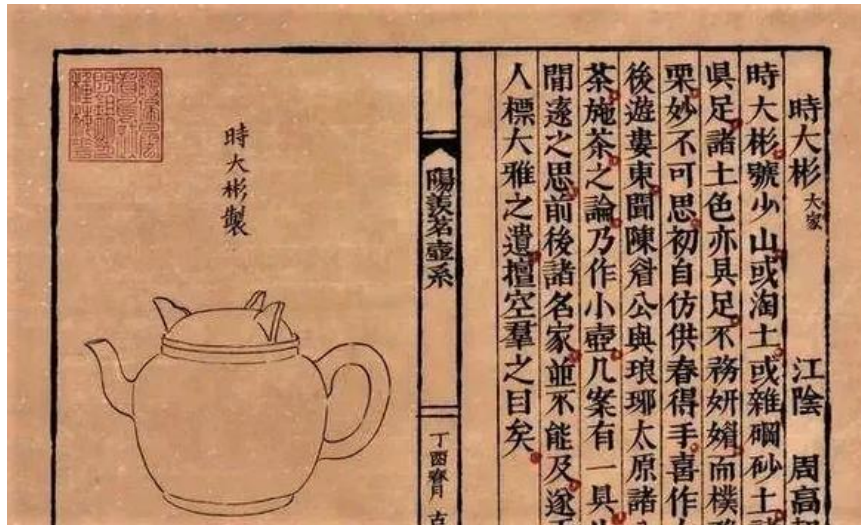 時大彬 大家 江陰 周高
時大彬號少山或淘土或雜碙砂土
具足諸土色亦具足不務妍媚而樸
栗妙不可思初自仿供春得手喜作
後遊婁東聞陳眉公與琅琊太原諸
茶施茶之論乃作小壺几案有一具
閒遠之思前後諸名家並不能及遂
人標大雅之遺擅空羣之目矣
陽羨茗壺系
丁酉
時大彬製